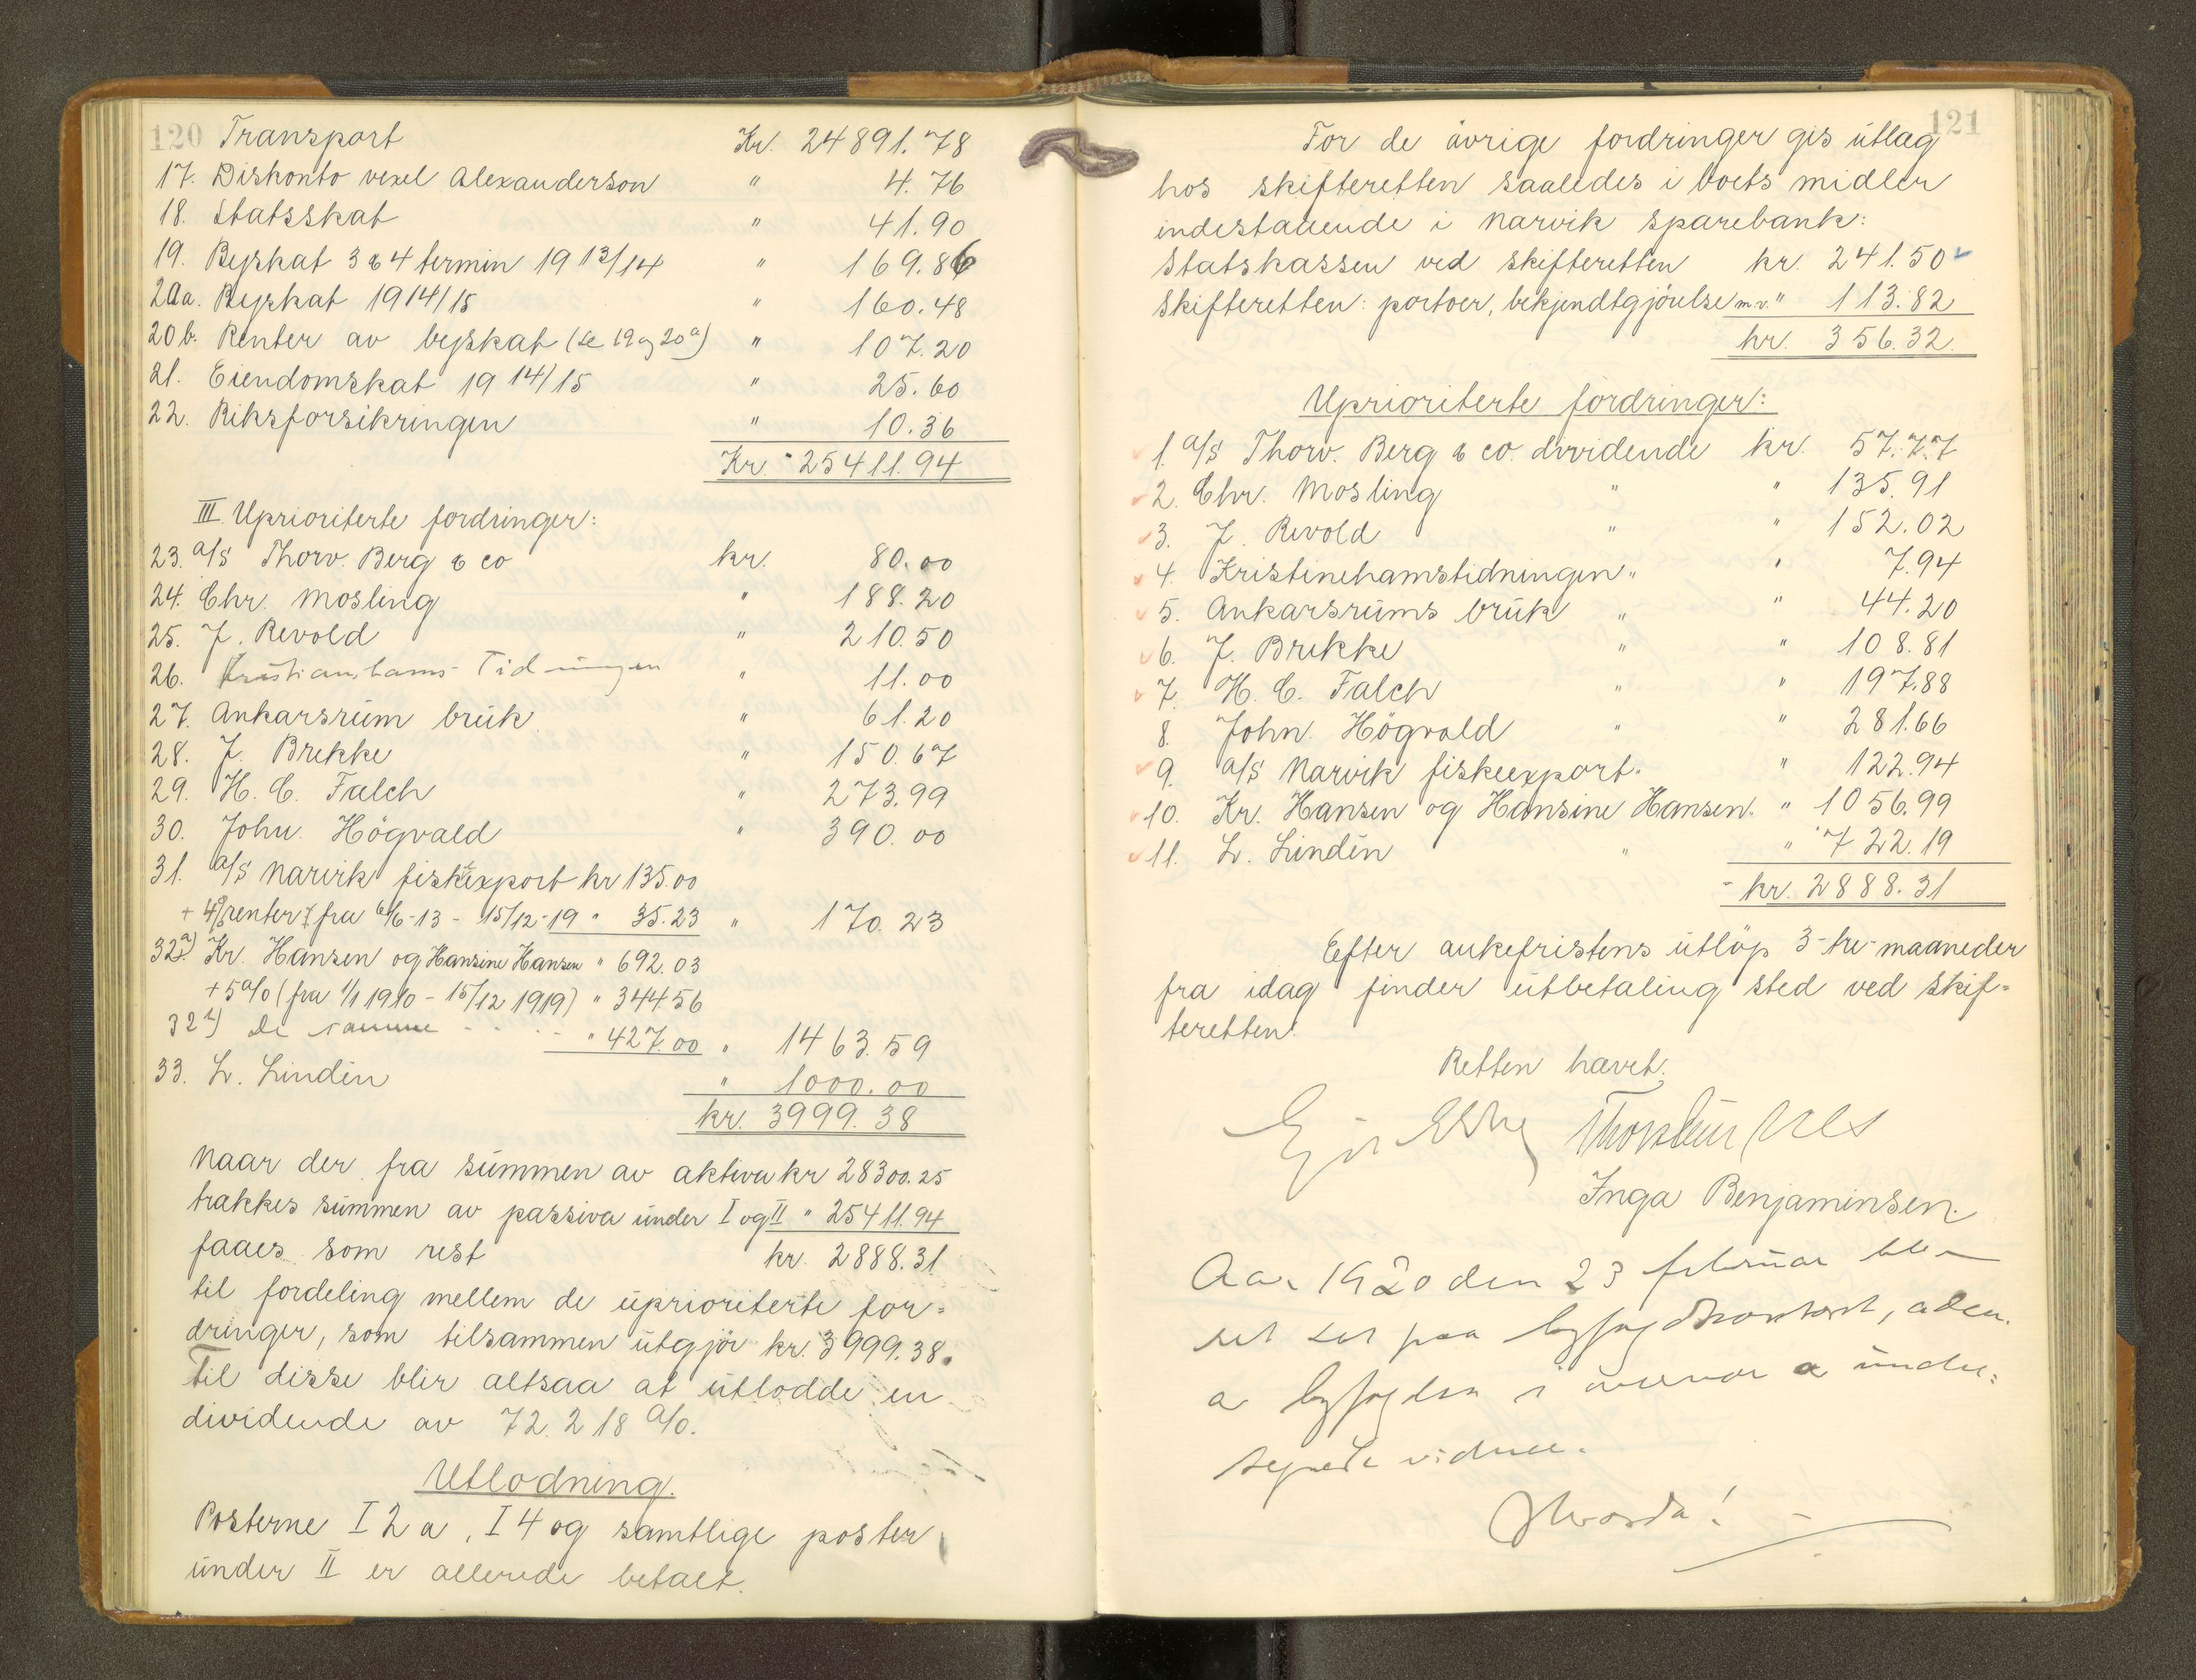 120 Transport Kr. 24891.78
17. Diskonto vexel Alexanderson " 4.76
18. Statsskat " 41.90
19. Byskat 3 & 4 termin 1913/14 " 169.86
20a. Byskat 1914/15 " 160.48
20b. Renter av byskat (se 19 og 20a) " 107.20
21. Eiendomskat 1914/15 " 25.60
22. Riksforsikringen " 10.36
Kr. 25411.94
III. Uprioriterte fordringer:
23. a/s Thorv. Berg & co kr. 80.00
24. Chr. Mosling " 188.20
25. J. Revold " 210.50
26. Kristianhams-Tidningen " 11.00
27. Ankarsrum bruk " 61.20
28. J. Brekke " 150.67
29. H. C. Falch " 273.99
30. John. Högvald " 390.00
31. a/s Narvik fiskexport kr 135.00
+ 4% renter fra 6/6-13 - 15/12-19 " 35.23 " 170.23
32a) Kr. Hansen og Hansine Hansen " 692.03
+ 5% (fra 1/1 1910 - 15/12 1919) " 344.56
32b) De samme - - - - " 427.00 " 1463.59
33. L. Lindin " 1000.00
kr. 3999.38
Naar der fra summen av aktiva kr 28300.25
trækkes summen av passiva under I og II " 25411.94
faaes som rest kr. 2888.31
til fordeling mellem de uprioriterte for=
dringer, som tilsammen utgjör kr. 3999.38.
Til disse blir altsaa at utlodde en
dividende av 72.218 %.
Utlodning.
Posterne I 2 a, I 4 og samtlige poster
under II er allerede betalt.
121
For de övrige fordringer gis utlæg
hos skifteretten saaledes i boets midler
indestaaende i Narvik sparebank:
Statskassen ved skifteretten kr. 241.50
Skifteretten: portoer, bekjendtgjörelse m.v. " 113.82
kr. 356.32
Uprioriterte fordringer:
1. a/s Thorv. Berg & co. dividende kr. 57.77
2. Chr. Mosling " " 135.91
3. J. Revold " " 152.02
4. Kristinehamstidningen " " 7.94
5. Ankarsrums bruk " " 44.20
6. J. Brekke " " 108.81
7. H. C. Falch " " 197.88
8. John. Högvald " " 281.66
9. a/s Narvik fiskeexport. " 122.94
10. Kr. Hansen og Hansine Hansen. " 1056.99
11. L. Lindin " " 722.19
kr. 2888.31
Efter ankefristens utlöp 3-tre-maaneder
fra idag finder utbetaling sted ved skif=
teretten.
Retten hævet.
Thorstein
Inga Benjaminsen.
Aar 1920 den 23 februar blev
ret sat paa byfogdkontoret,
av byfogden i overvær av under=
tegnede vidner.
Hvorda!